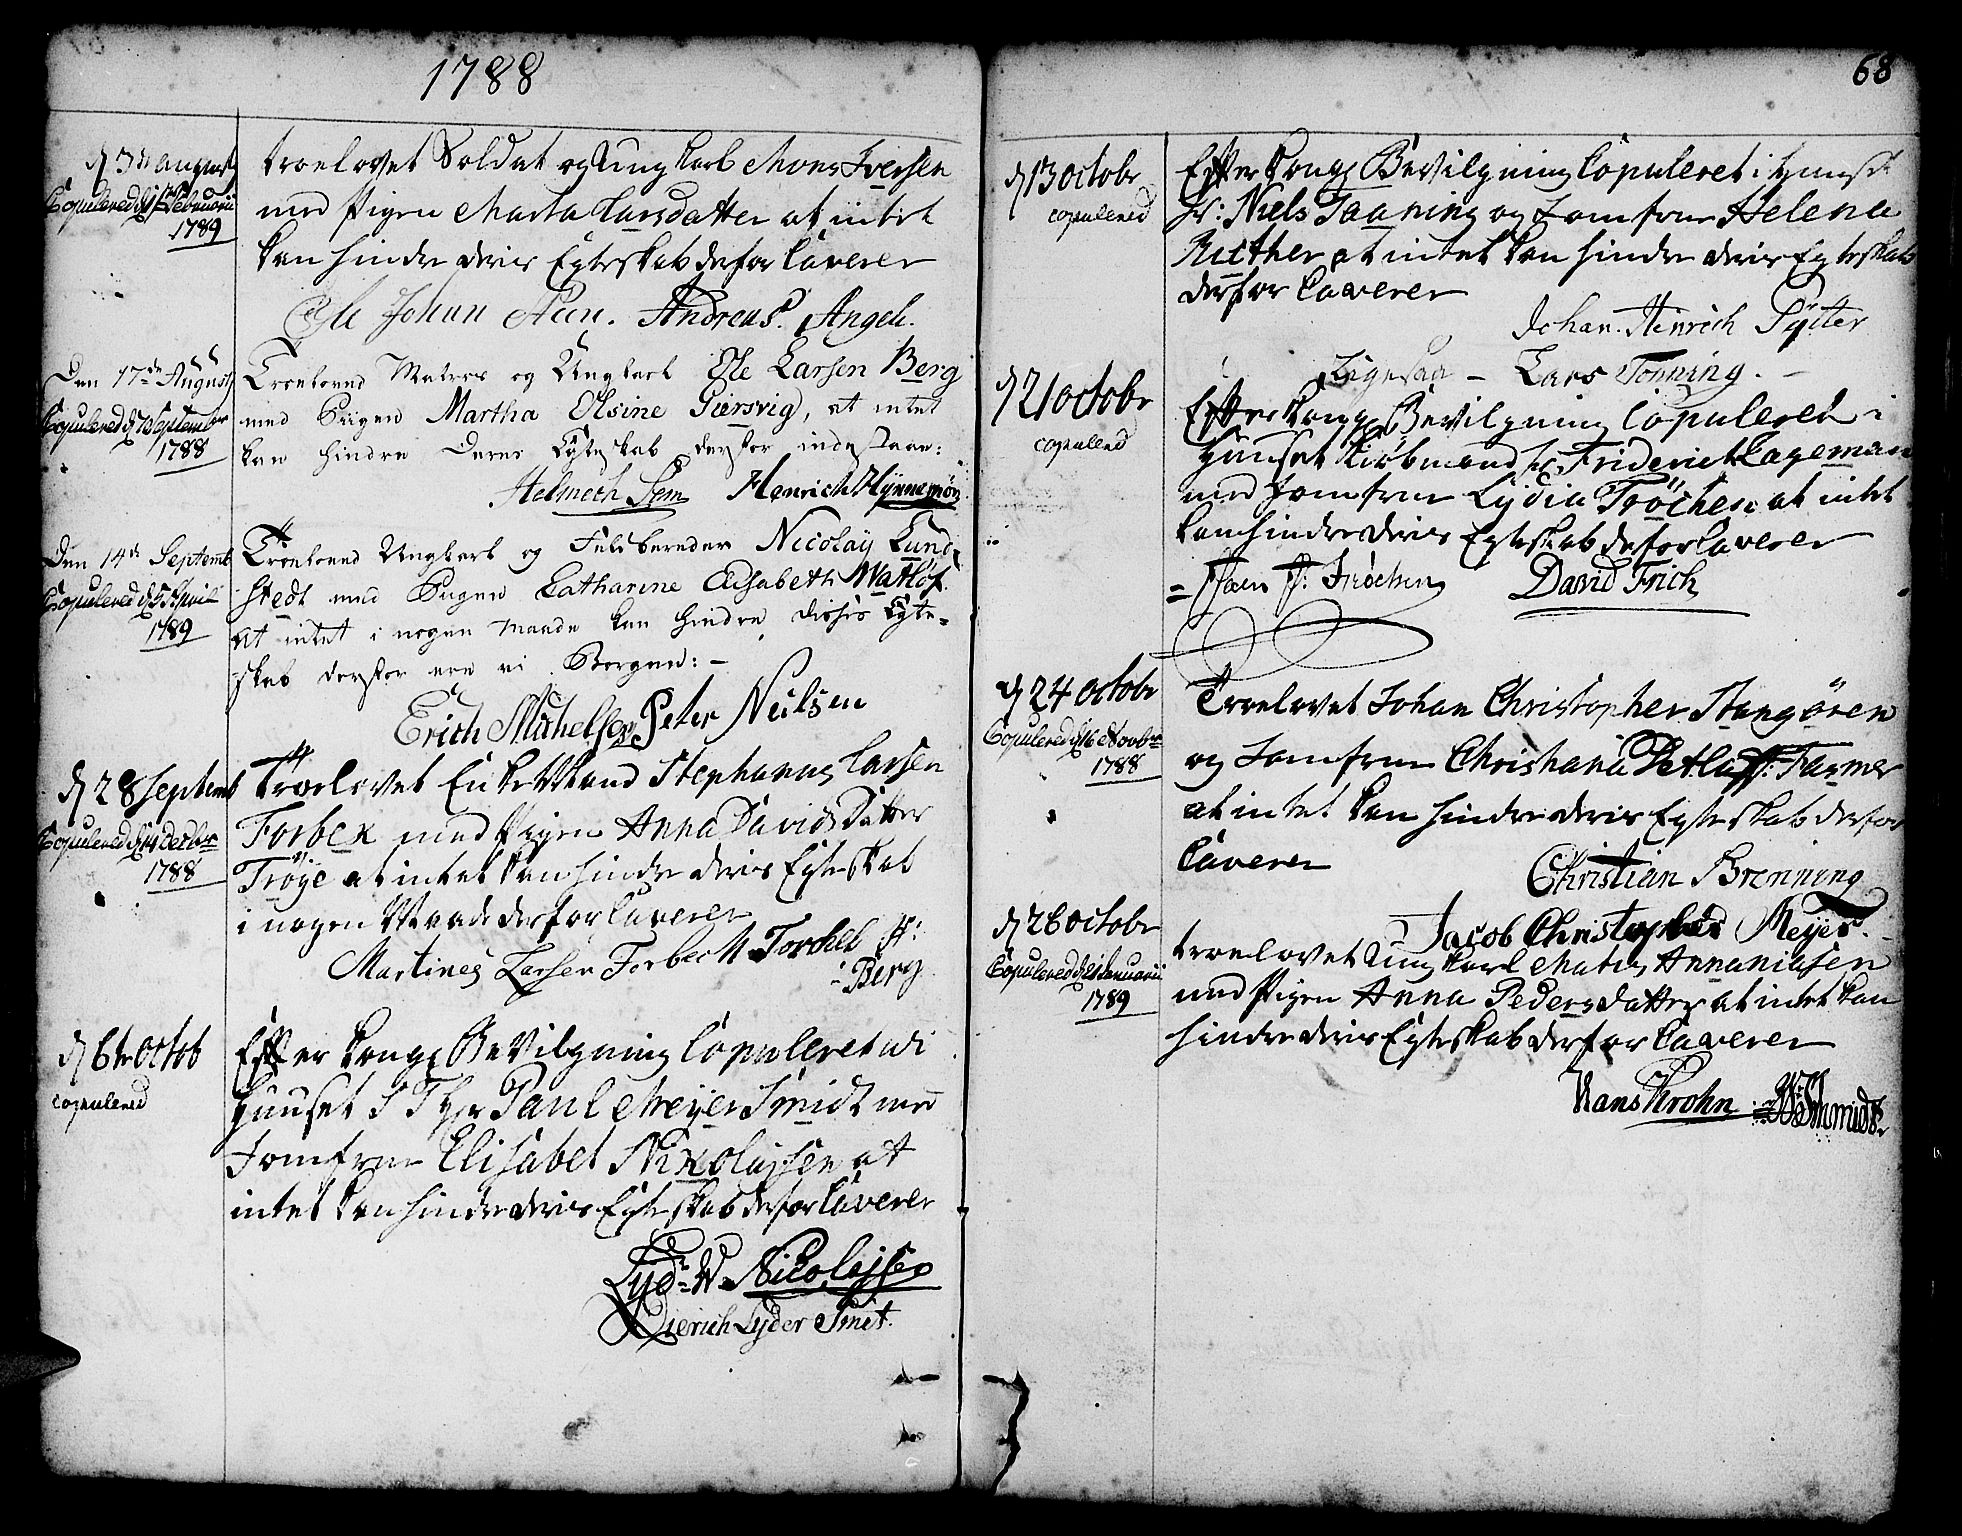 1788
d 3die august
Copulered d 1ste Februarii
1789
troelovet Soldat og Ung karl Mons Iversen
med Pigen Marta Larsdatter at intet
kan hindre deris Egteskab derfor Caverer
Ole Johan Andreas Angel.
Den 17de August
Copulered d 7 September
1788
Troeloved Matros og Ungkarl Ole Larsen Berg
med Piigen Martha Olsine Giersvig, at intet
kan hindre deres Egteskab derfor indestaae:
Helmech Sem Henrich Hynnemør
Den 14de Septemb
Copulered d 5 April
1789
Troeloved Ungkarl og Feldbereder Nicolaÿ Lund
stedt med Pigen Catharine Elisabeth Watlöf
at intet i nogen maade kan hindre disses Egte-
skab derfor ere vi Borgen: -
Erich Michelsen Peter Nielsen
d 28 Septemb
Copulered d 14 Decbr
1788
Troelovet Enke Mand Stephanus Larsen
Forbek med Pigen Anna Davids Datter
Tröÿe at intet kan hindre deris Egteskab
i nogen Maade derfor Caverer
Martines Larsen Forbech Torchel H:
Berg
d 6te Octob
copulered
Efter Kongl Bevilgning Copuleret udi
Huuset S T Hr Paul Meÿer Smidt med
Jomfrue Elisabet Nikolaÿsen at
intet kan hindre deris Egteskab derfor Caverer
Lyder W Nicolaÿsen
Dierich Lyder Smit.
68
d 13 Octobr
copulered
Efter Kongl Bevilgning Copuleret i Huuset
Hr: Niels Taaning og Jomfrue Helena
Rüther at intet kan hindre deris Egteskab
derfor Caverer
Johan Hinrich Pÿtter
Ligesaa - Lars Tonning. -
d 21 Octobr
copulerd
Efter Kongl Bevilgning Copuleret i
Huuset Kiøbmand Hr Friderich Lageman
med Jomfrue Lÿdia Tröchen at intet
kan hindre deris Egteskab derfor Caverer
Tröchen David Frich
d 24 Octobr
Copulered d 16 Novbr
1788
Troelovet Johan Christopher Stangören
og Jomfrue Christiana Farmer
at intet kan hindre deris Egteskab derfor
Caverer
Christian Brenning
Jacob Christopher Meÿer.
d 26 Octobr
Copulered d 2 Januarii
1789
troelovet Ung karl Matis Annaniasen
med Pigen Anna Peders datter at intet kan
hindre deris Egteskab derfor Caverer
Hans Krohn Schmidt